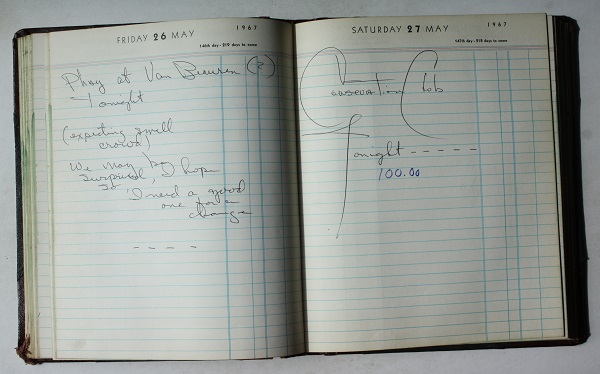 FRIDAY 26 MAY 1967
146th day - 219 days to come
Play at Van Beuren (?)
Tonight
(expecting small
crowd)
We may be
surprised, I hope
so I need a good
one for a
change
- - - -
SATURDAY 27 MAY 1967
147th day - 218 days to come
Conservation Club
Tonight - - - - -
100.00